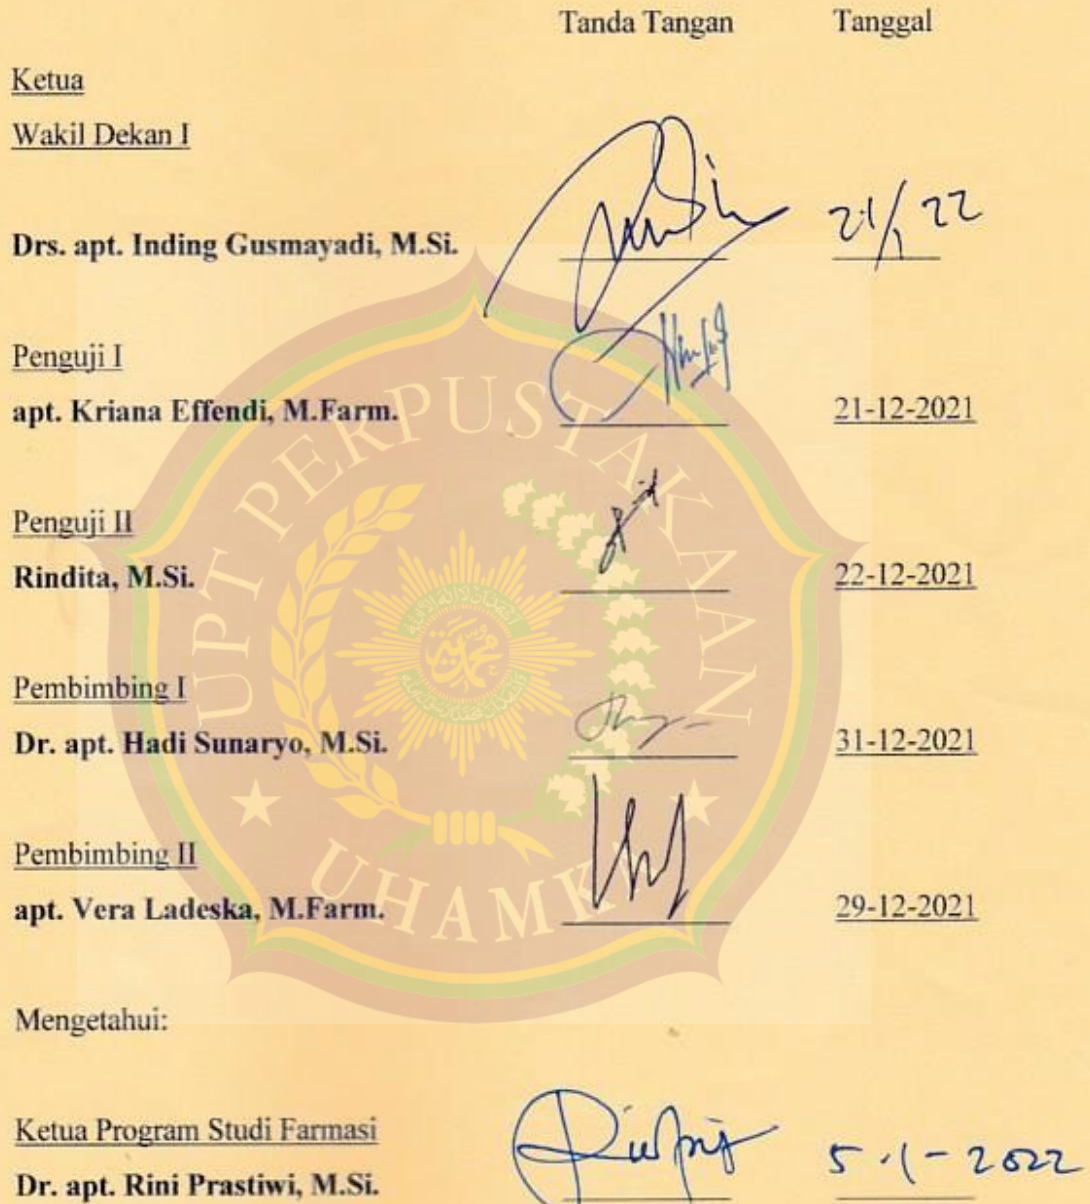 Tanda Tangan Tanggal
Ketua
Wakil Dekan I
Drs. apt. Inding Gusmayadi, M.Si. 21/1 22
Penguji I
apt. Kriana Effendi, M.Farm. 21-12-2021
Penguji II
Rindita, M.Si. 22-12-2021
Pembimbing I
Dr. apt. Hadi Sunaryo, M.Si. 31-12-2021
Pembimbing II
apt. Vera Ladeska, M.Farm. 29-12-2021
Mengetahui:
Ketua Program Studi Farmasi
Dr. apt. Rini Prastiwi, M.Si. 5-1-2022
UPT PERPUSTAKAAN
UHAMKA